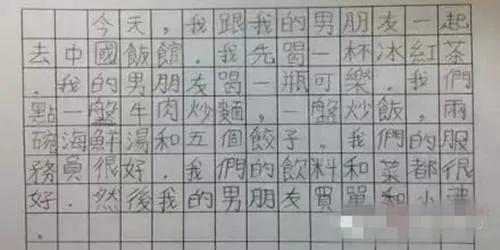 今天,我跟我的男朋友一起
去中國飯館.我先喝一杯冰紅茶
.我的男朋友喝一瓶可樂.我們
點一盤牛肉炒麵,一盤炒飯,兩
碗海鮮湯和五個餃子.我們的服
務員很好.我們的飲料和菜都很
好.然後我的男朋友買單和小費